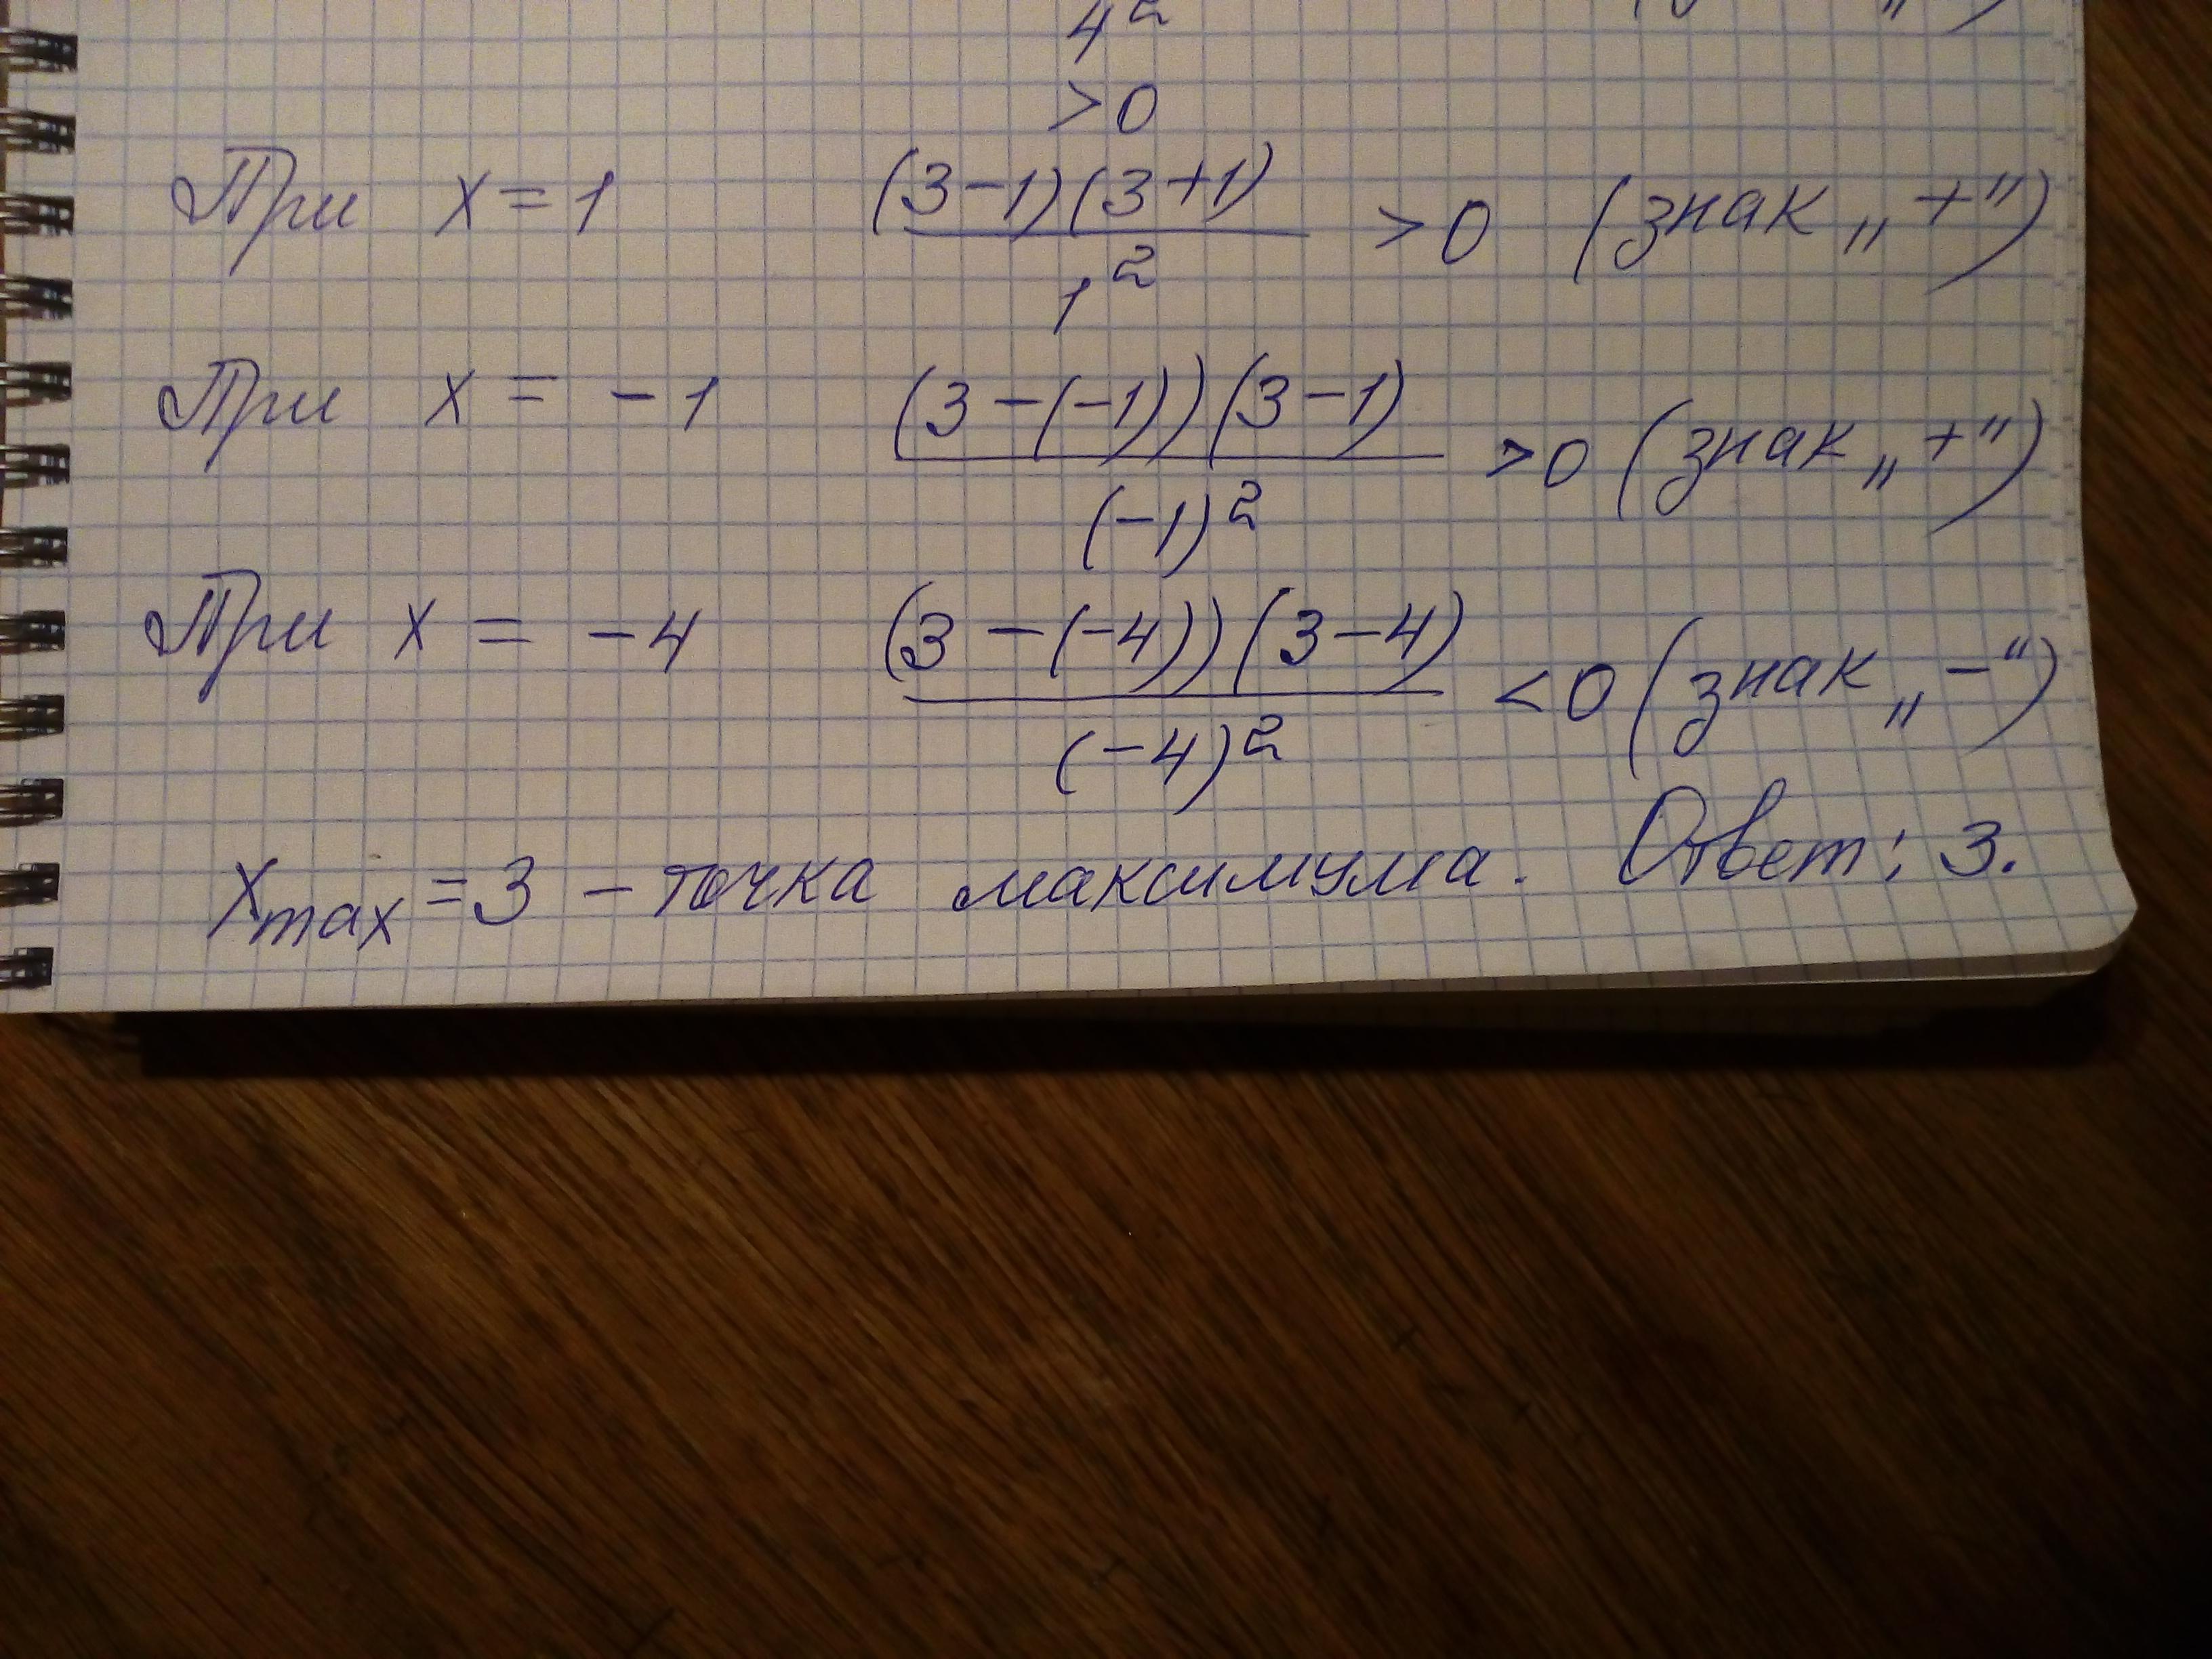 4²
>0
При x=1 (3-1)(3+1)/1² >0 (знак „+“)
При x = -1 (3-(-1))(3-1)/(-1)² >0 (знак „+“)
При x = -4 (3-(-4))(3-4)/(-4)² <0 (знак „-“)
xmax=3 - точка максимума. Ответ: 3.